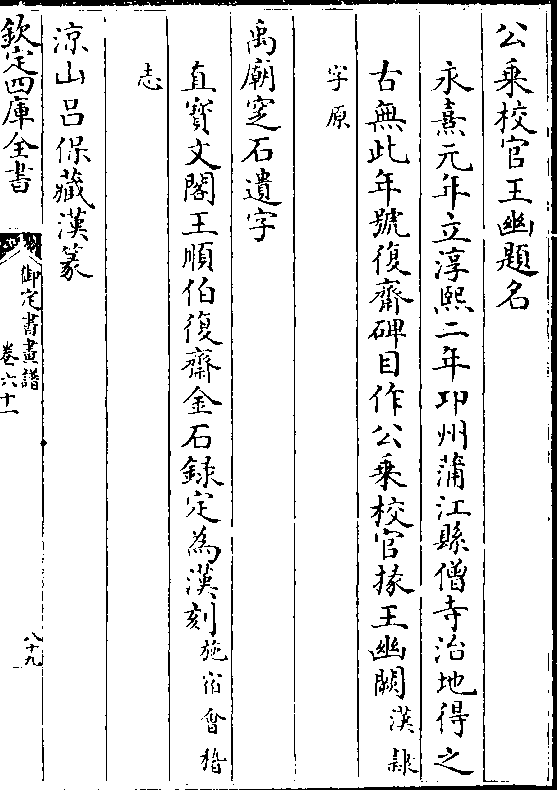 公乗校官王幽題名
永熹元年立淳熙二年邛州蒲江縣僧寺治地得之
古無此年號復齋碑目作公乗校官掾王幽闕漢隸
字原
禹廟窆石遺字
直寶文閣王順伯復齋金石録定為漢刻施宿會稽
志
涼山吕保藏漢篆
欽定四庫全書
御定書畫譜
卷六十一
八十九